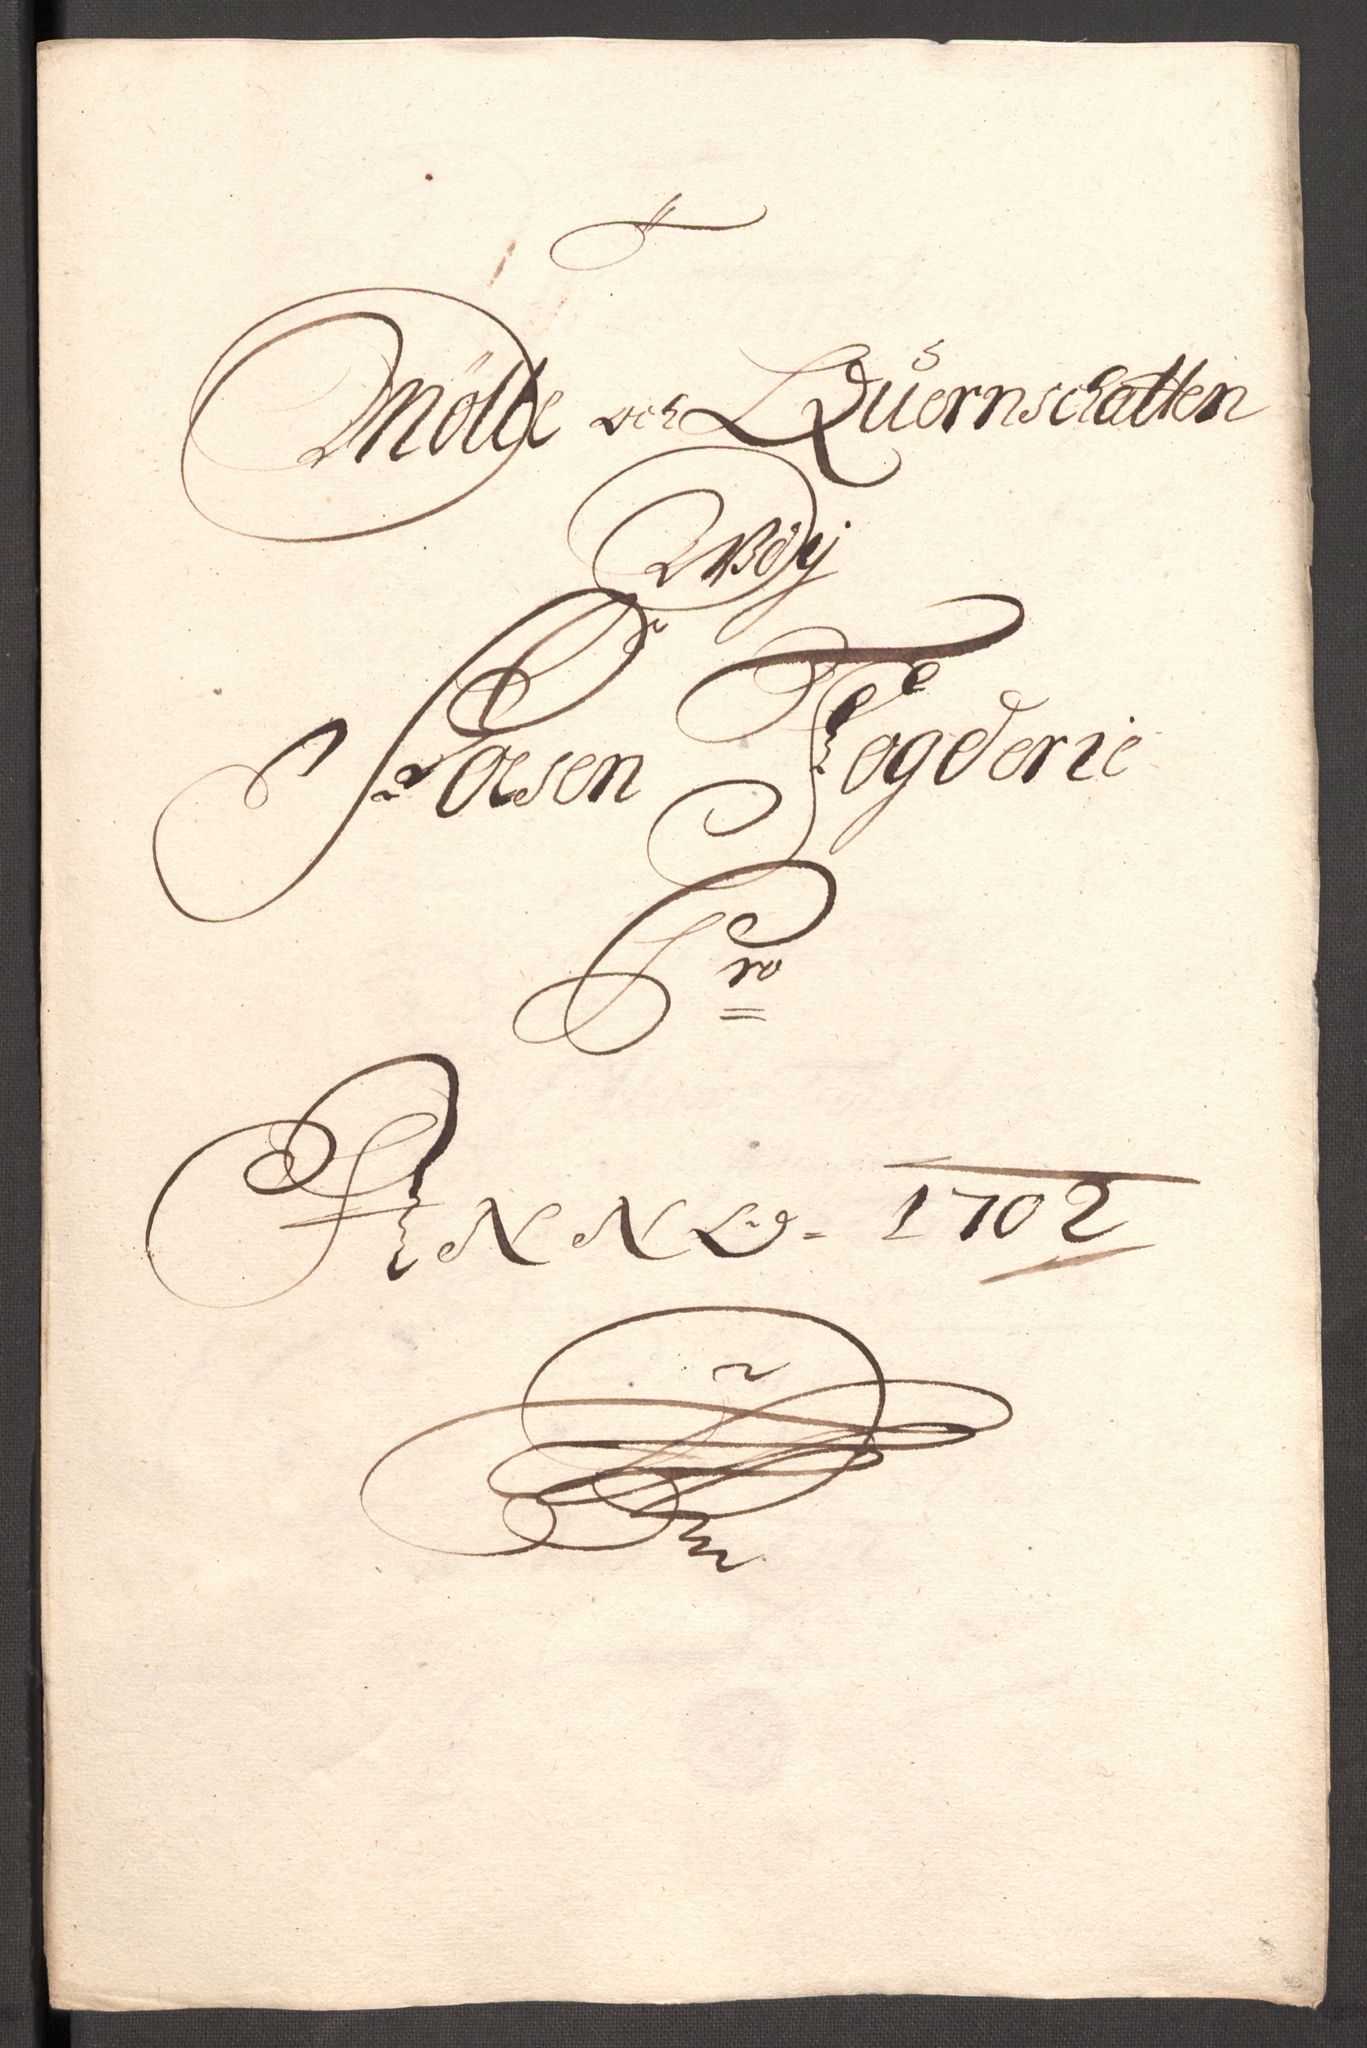 Mölle och Quernschatten
Udj
Fosen Fogderie
Pro
ANNO. 1702